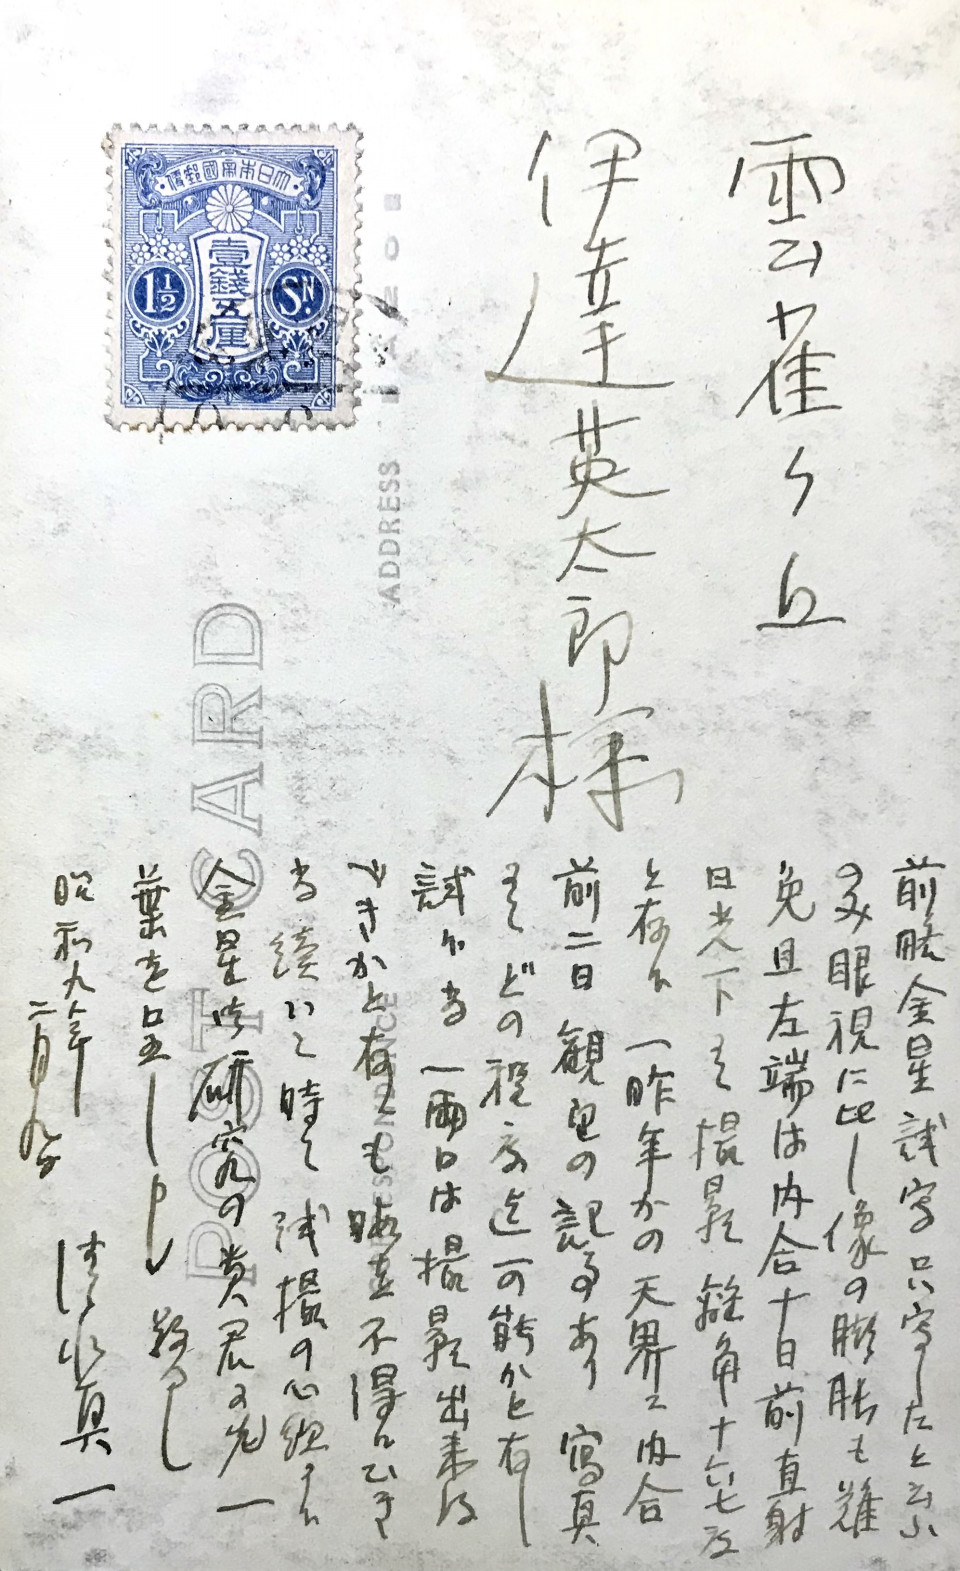 雲雀ヶ丘
伊達英太郎様
大日本帝國郵便
壹錢五厘
1½ Sn.
POST CARD
CORRESPONDENCE
ADDRESS
前略金星試写只写したと云ふ
のみ眼視に比し像の膨脹も難
免且左端は内合十日前直射
日光下にて撮影離角十六七度
と存候一昨年かの天界に内合
前二日観望の記事あり寫真
にてどの程度迄可能かと存じ
試み当一両日は撮影出来得
べきかと存候も晴をし不得
尚続いて時々試撮の心組に候
金星御研究の貴君の先一
葉を呈し申
昭和九年
二月九日
清水真一